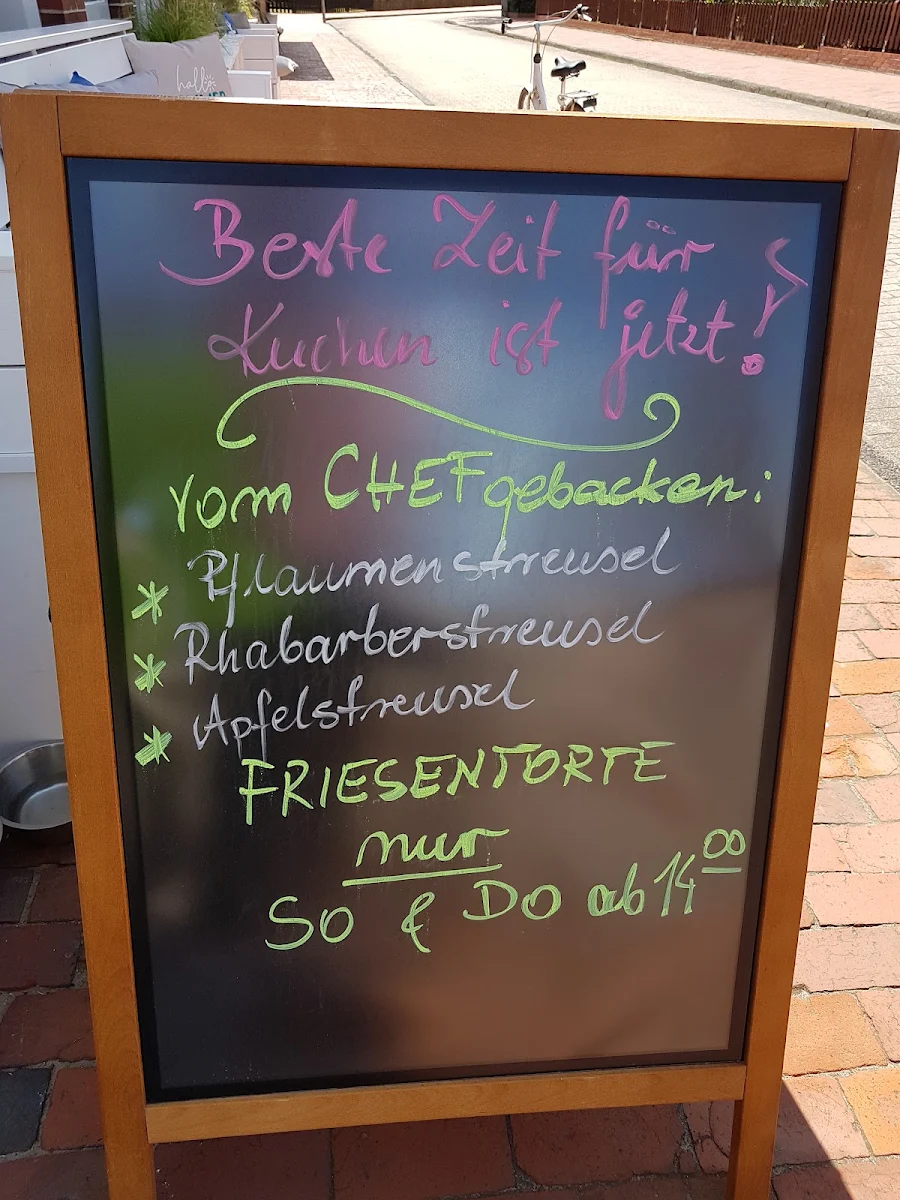 hallo
Beste Zeit für
Kuchen ist jetzt!
vom CHEF gebacken:
* Pflaumenstreusel
* Rhabarberstreusel
* Apfelstreusel
FRIESENTORTE
nur
So & Do ab 14 00